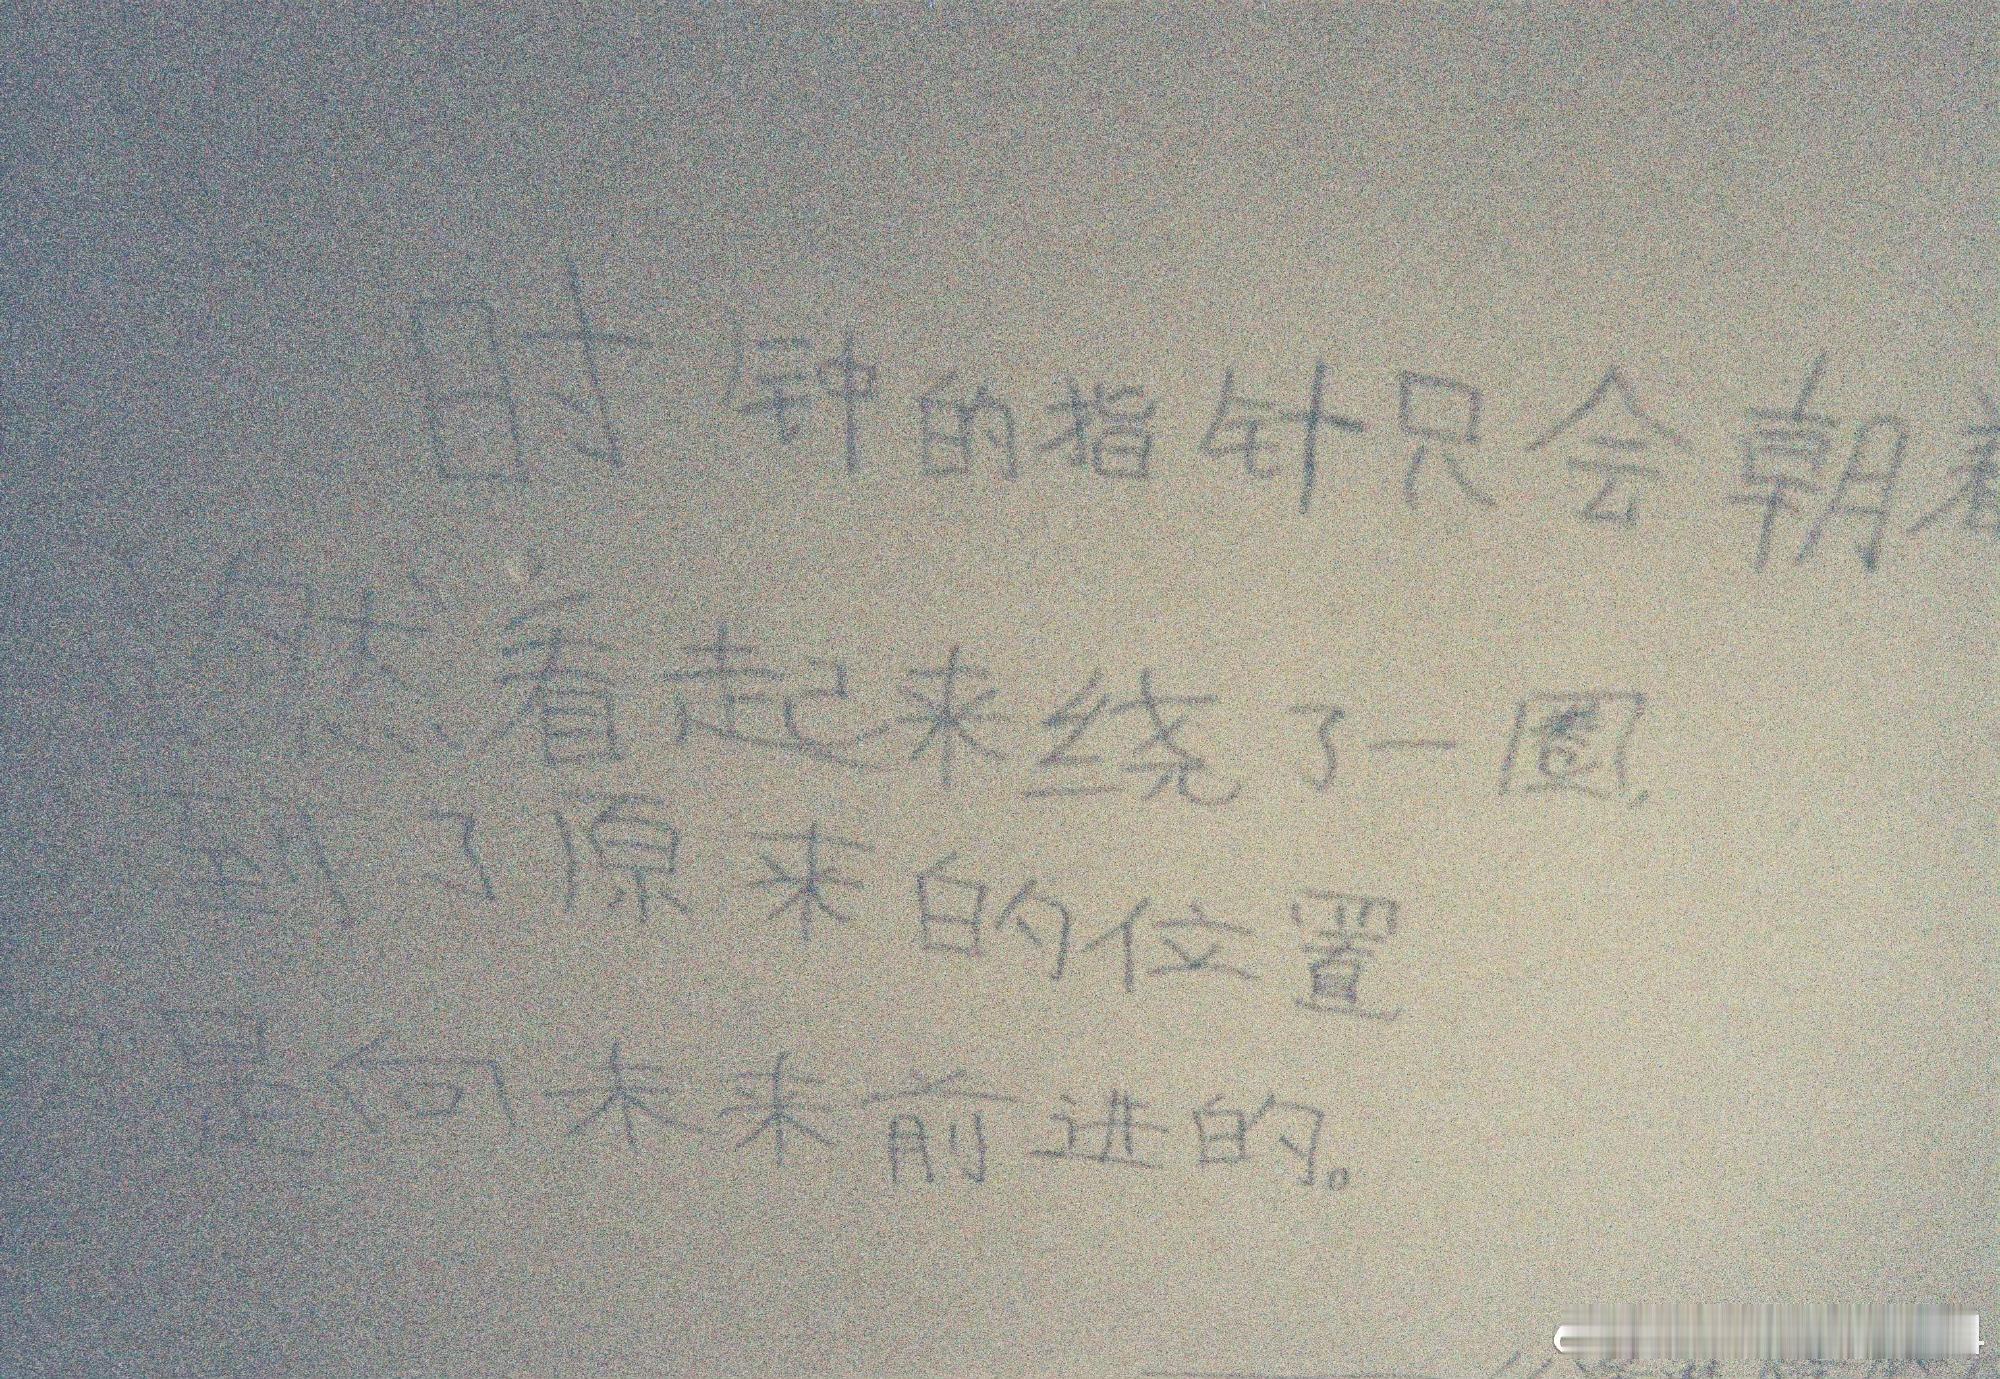 时钟的指针只会朝着
然看起来绕了一圈,
到了原来的位置
是向未来前进的。